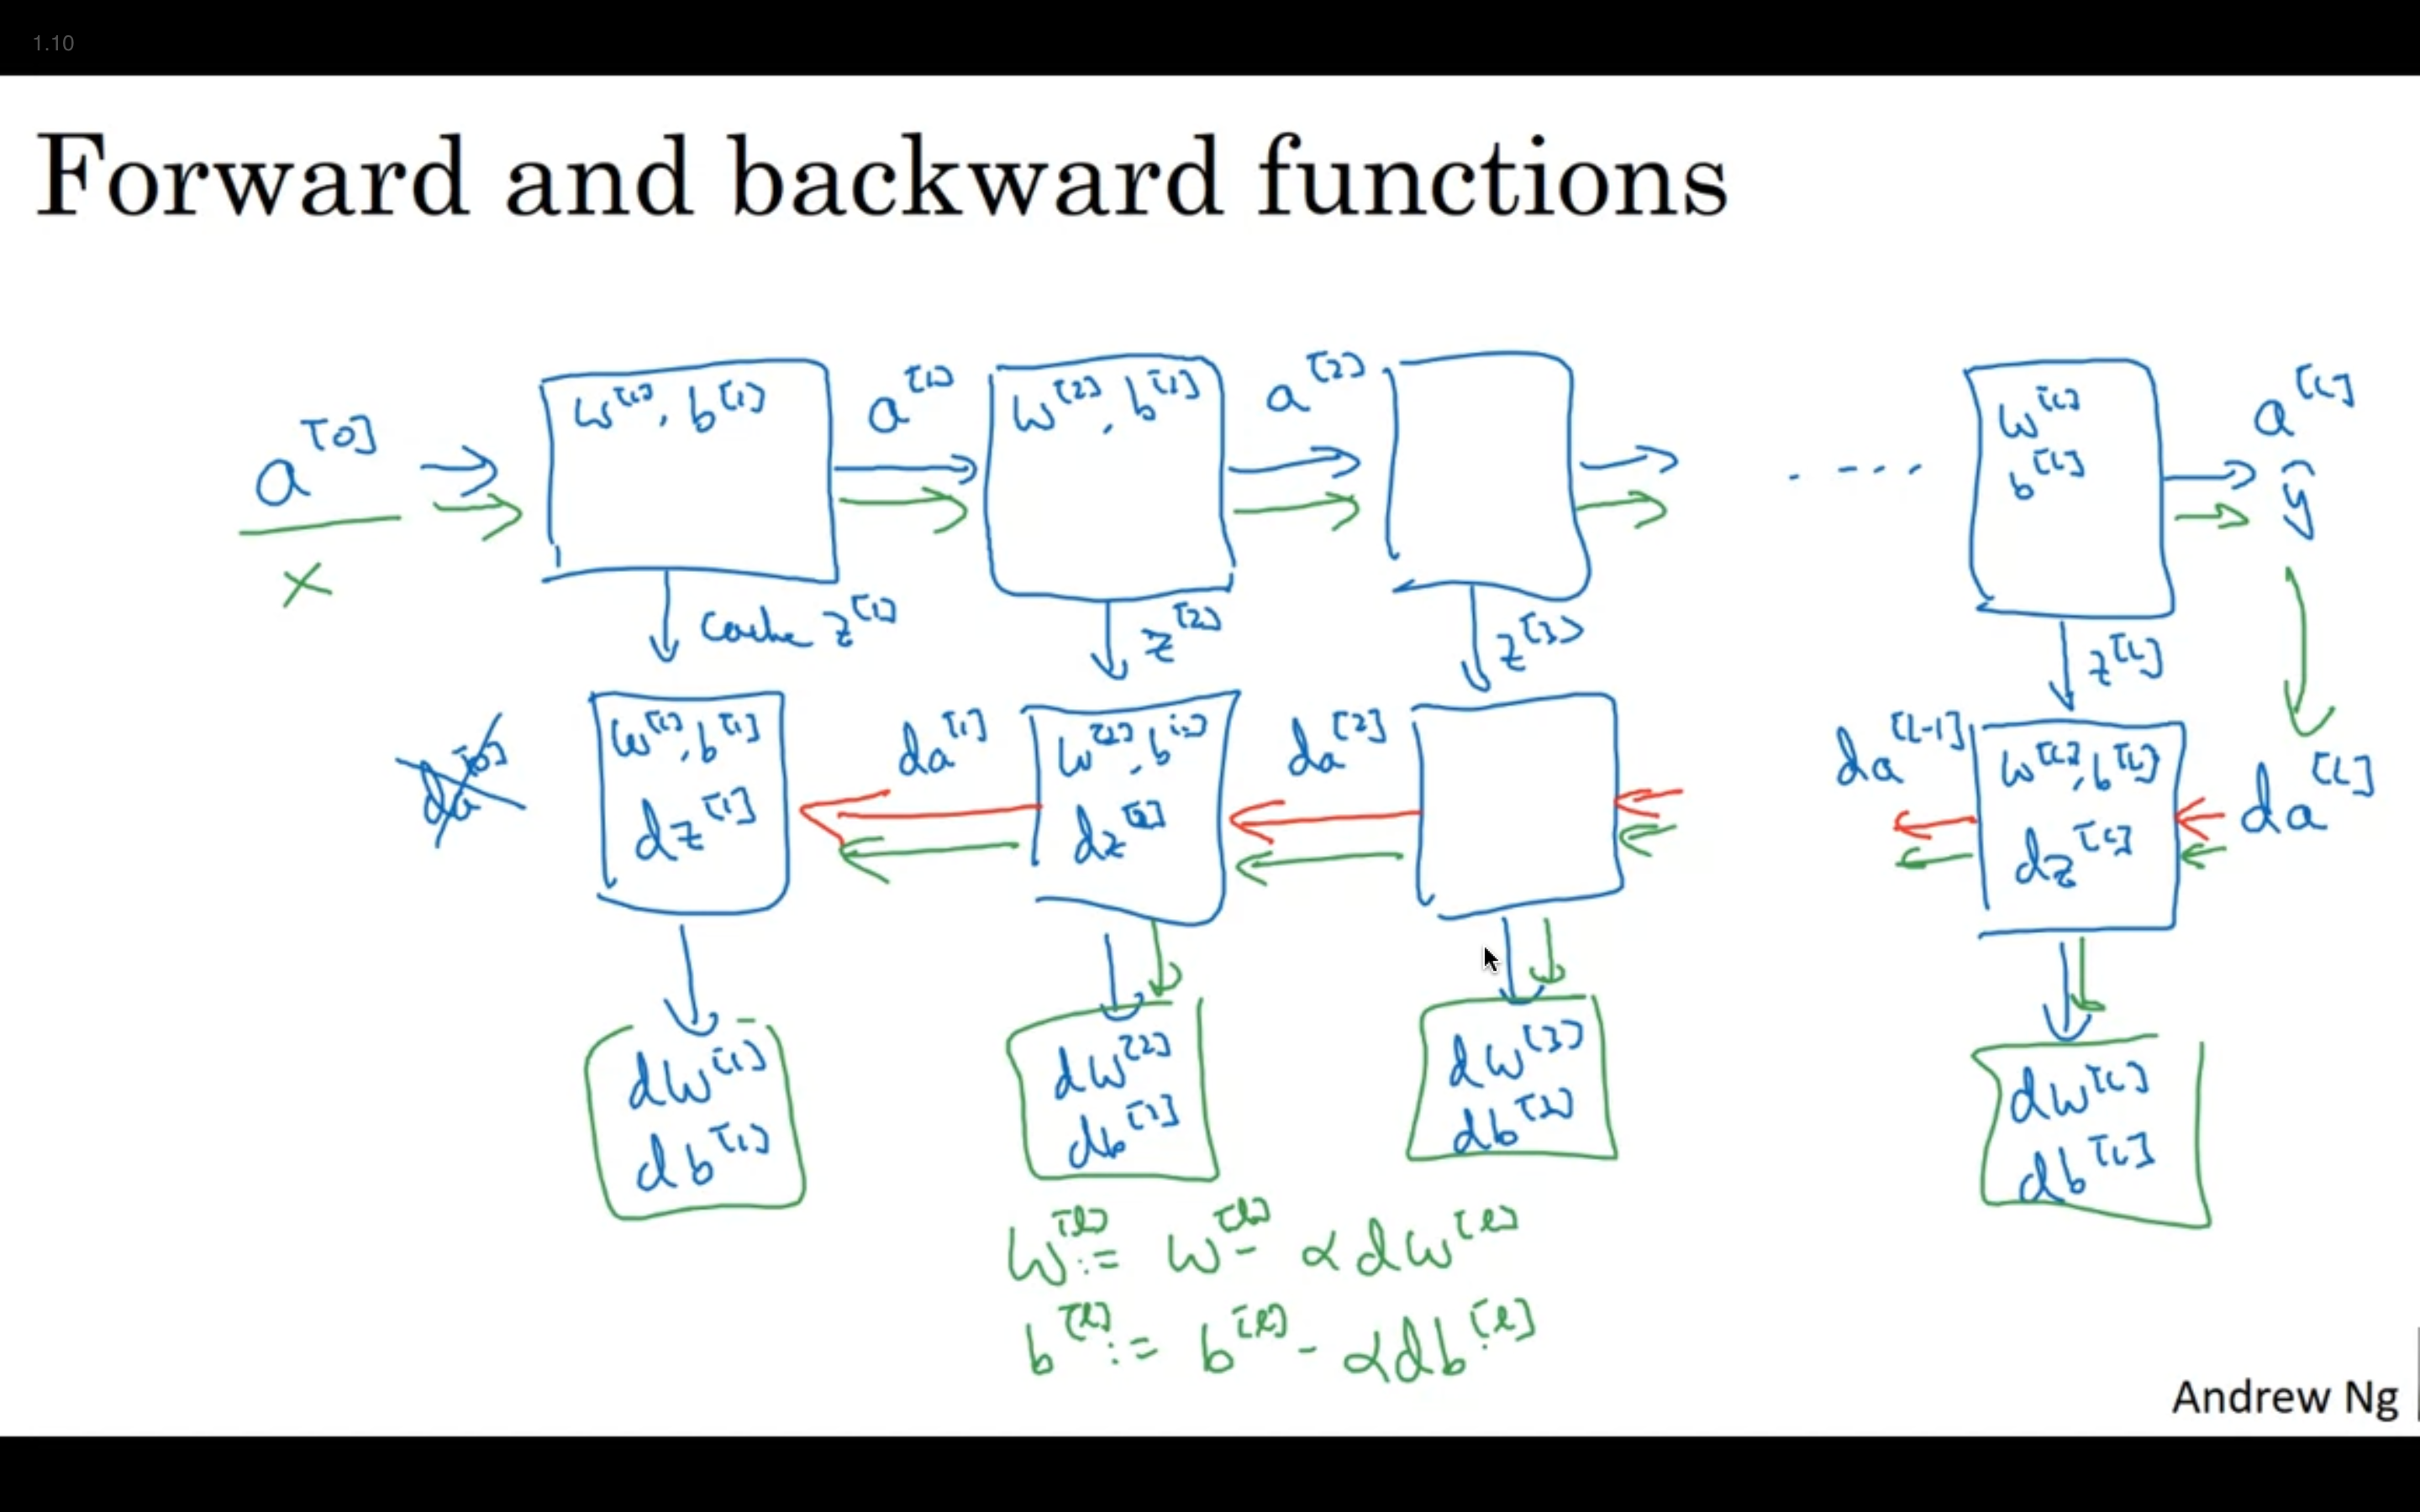 1.10
Forward and backward functions
a^[0] w^[1], b^[1] a^[1] w^[2], b^[2] a^[2] w^[L] b^[L] a^[L] ŷ
x
cache z^[1] z^[2] z^[3] z^[L]
da^[0] w^[1], b^[1] da^[1] w^[2], b^[2] da^[2] da^[L-1] w^[L], b^[L] da^[L]
dz^[1] dz^[2] dz^[L]
dw^[1] dw^[2] dw^[3] dw^[L]
db^[1] db^[2] db^[3] db^[L]
w^[l] := w^[l] - αdw^[l]
b^[l] := b^[l] - αdb^[l]
Andrew Ng